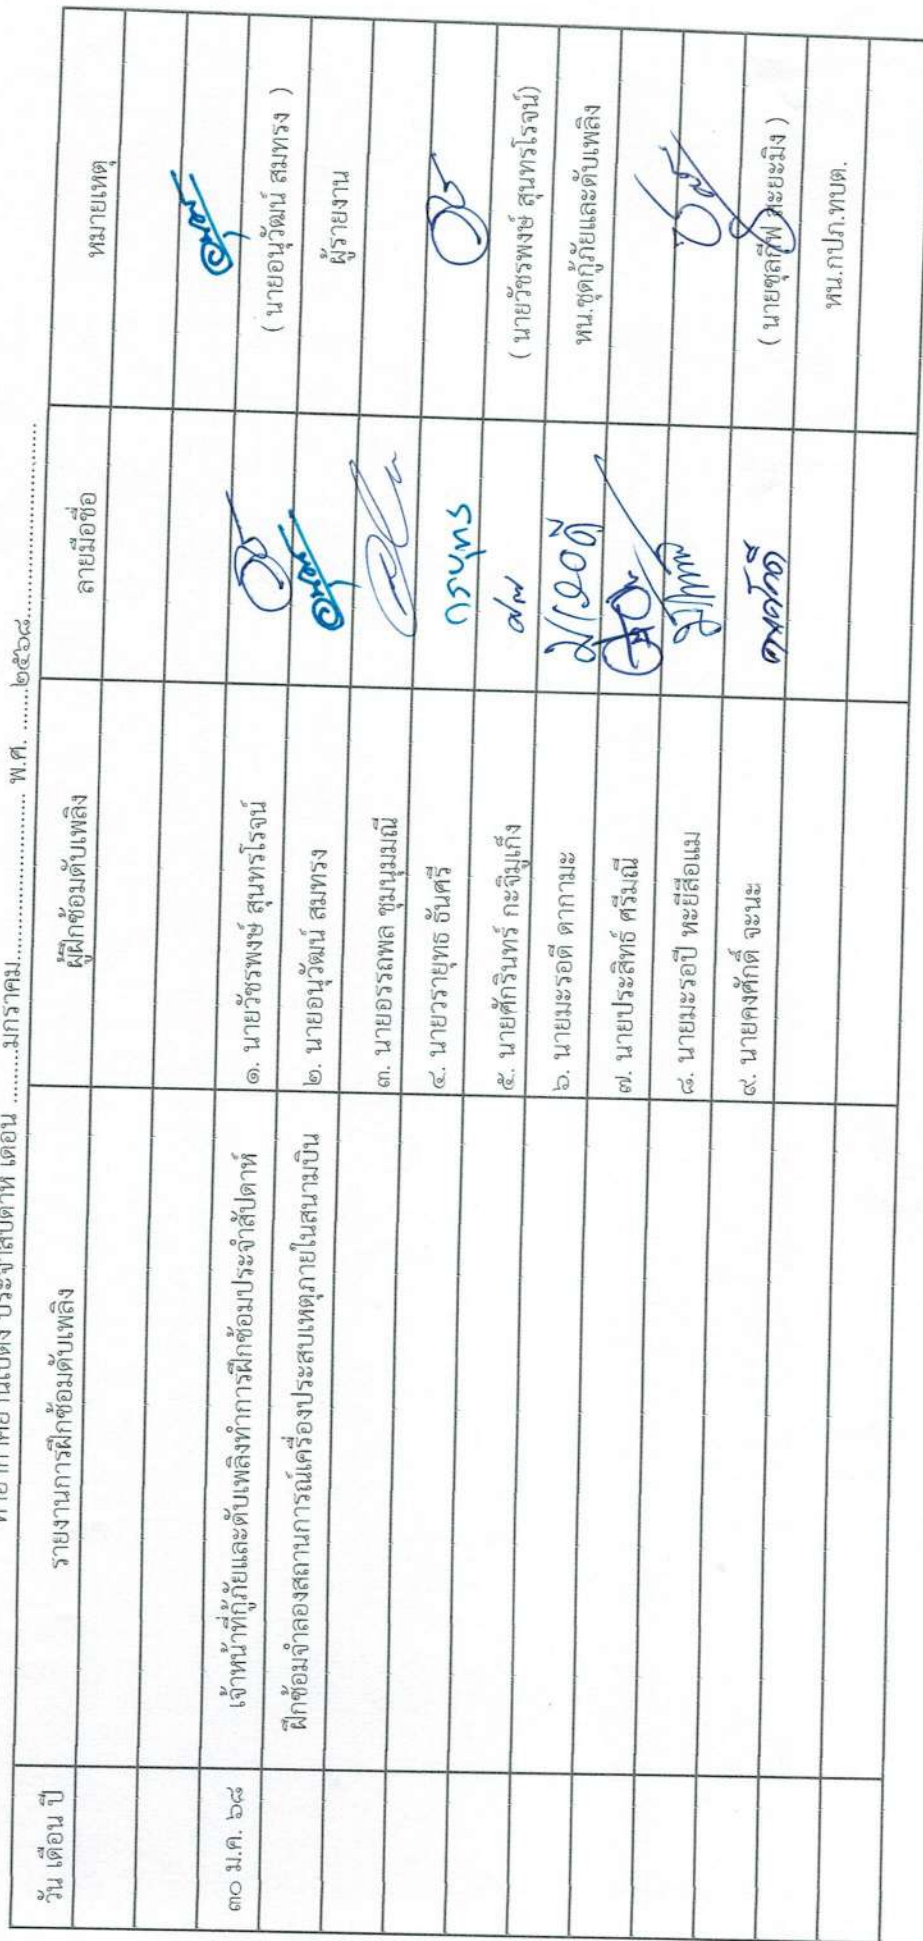 ท่าอากาศยานเบตง ประจำสัปดาห์ เดือน .........มกราคม.................. พ.ศ. ......๒๕๖๘..............................
วัน เดือน ปี รายงานการฝึกซ้อมดับเพลิง ผู้ฝึกซ้อมดับเพลิง ลายมือชื่อ หมายเหตุ
๓๐ ม.ค. ๖๘ เจ้าหน้าที่กู้ภัยและดับเพลิงทำการฝึกซ้อมประจำสัปดาห์ ๑. นายวัชรพงษ์ สุนทรโรจน์ ( นายอนุวัฒน์ สมทรง )
ฝึกซ้อมจำลองสถานการณ์เครื่องประสบเหตุภายในสนามบิน ๒. นายอนุวัฒน์ สมทรง ผู้รายงาน
๓. นายอรรถพล ชุมนุมมณี
๔. นายวรายุทธ ธันศรี
๕. นายศักรินทร์ กะจิมูเก็ง ( นายวัชรพงษ์ สุนทรโรจน์)
๖. นายมะรอดี ดากามะ มะรอดี หน.ชุดกู้ภัยและดับเพลิง
๗. นายประสิทธิ์ ศรีมณี
๘. นายมะรอปี หะยีสือแม
๙. นายคงศักดิ์ จะนะ คงศักดิ์ ( นายซุลกีฟ สะยะมิง )
หน.กปภ.ทบต.